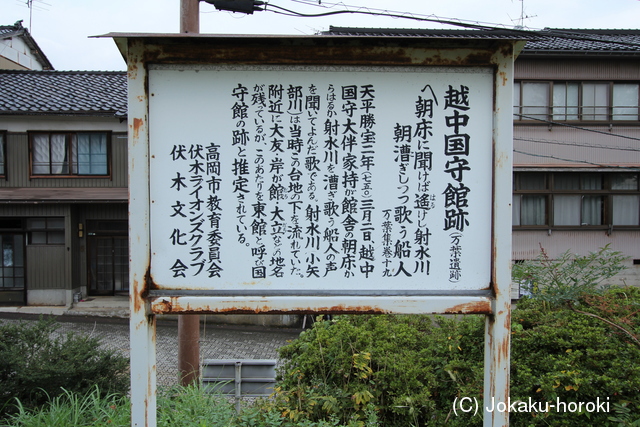 越中国守館跡(万葉遺跡)
朝床に聞けば遙けし射水川
はる
朝漕ぎしつつ歌う船人
万葉集巻十九
天平勝宝二年(七五〇)三月二日、越中
国守大伴家持が館舎の朝床か
らはるか射水川を漕ぎ歌う船人の声
を聞いてよんだ歌である。射水川(小矢
部川)は当時この台地の下を流れていた。
附近に大友・岸が館・大立などの地名
が残っているが、このあたりを東館と呼び国
守館の跡と推定されている。
高岡市教育委員会
伏木ライオンズクラブ
伏木文化会
(C) Jokaku-horoki